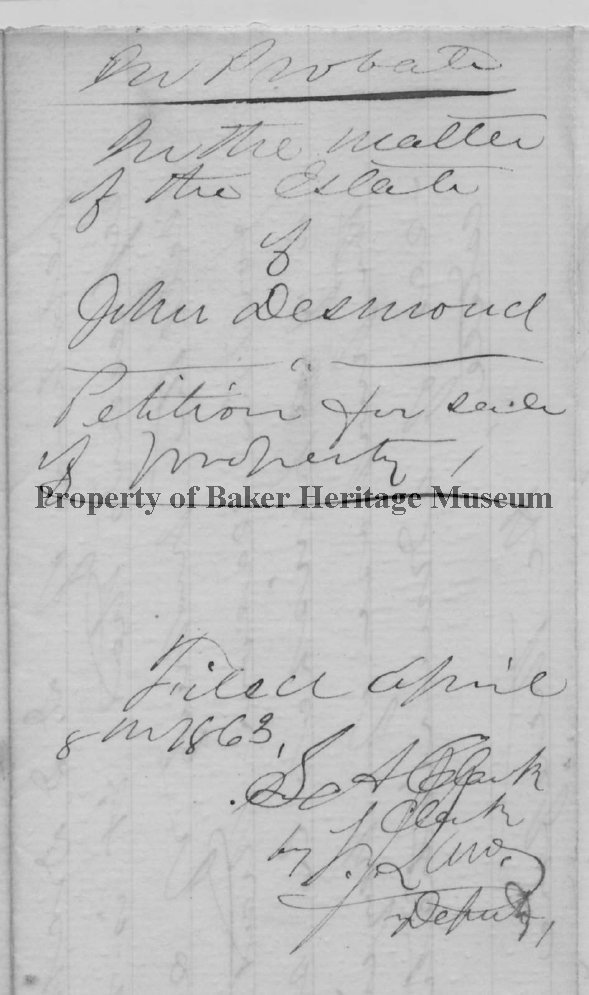 In Probate
In the matter
of the Estate
of
John Desmond
Petition for sale
of property,
Property of Baker Heritage Museum
Filed April
8th 1863,
S A Clark
Clerk
by
Deputy,